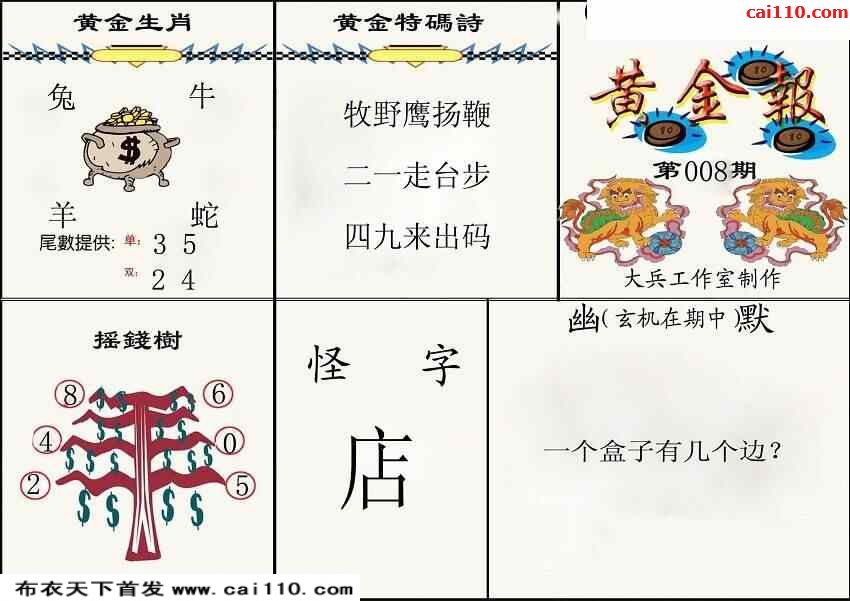 cai110.com
黄金生肖
兔 牛
$
羊 蛇
尾數提供: 单: 3 5
双: 2 4
黄金特碼詩
牧野鹰扬鞭
二一走台步
四九来出码
黄金報
第008期
大兵工作室制作
摇錢樹
8 6
4 0
2 5
怪 字
店
幽(玄机在期中)默
一个盒子有几个边?
布衣天下首发 www.cai110.com